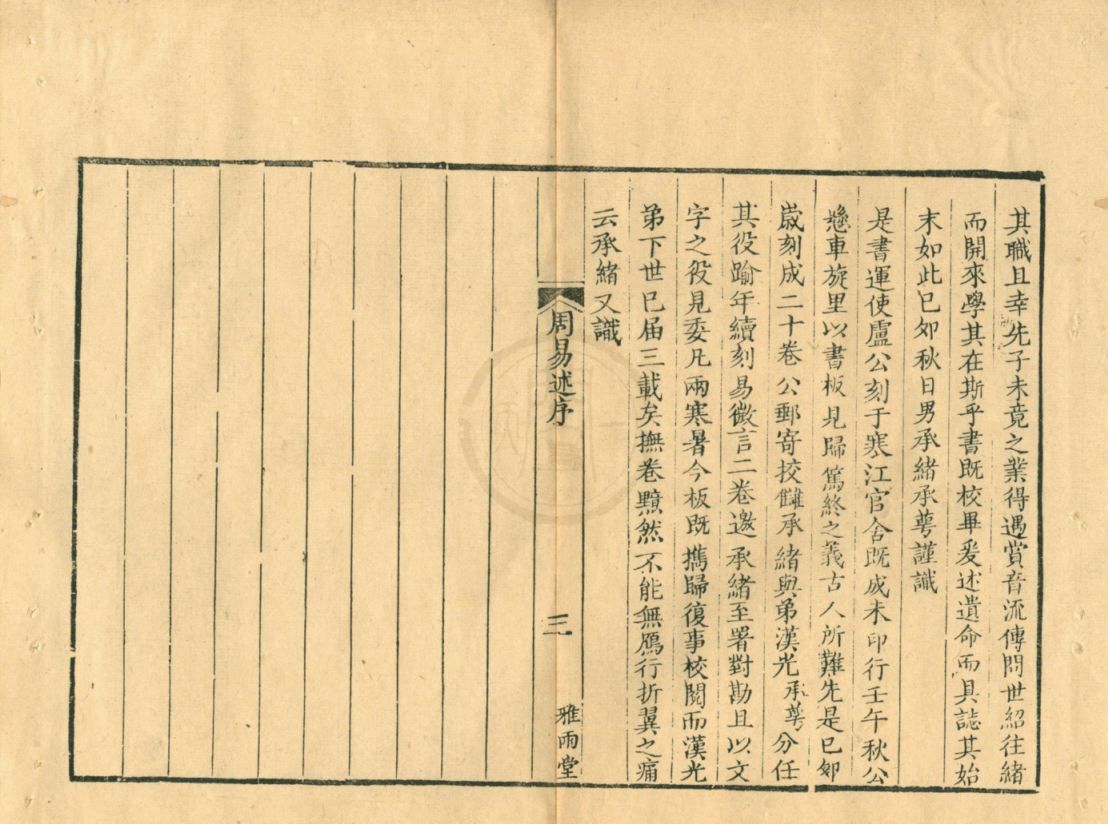 其職且幸先子未竟之業得遇賞音流傳問世紹往緒
而開來學其在斯乎書既校畢爰述遺命而具誌其始
末如此已夘秋日男承緒承蕚謹識
是書運使盧公刻于寒江官舍既成未印行壬午秋公
懸車旋里以書板見歸篤終之義古人所難先是已夘
歲刻成二十卷公郵寄挍讎承緒與弟漢光承蕚分任
其役踰年續刻易微言二卷邀承緒至署對勘且以文
字之役見委凡兩寒暑今板既攜歸復事校閱而漢光
弟下世已届三載矣撫卷黯然不能無鴈行折翼之痛
云承緒又識
周易述序
三
雅雨堂